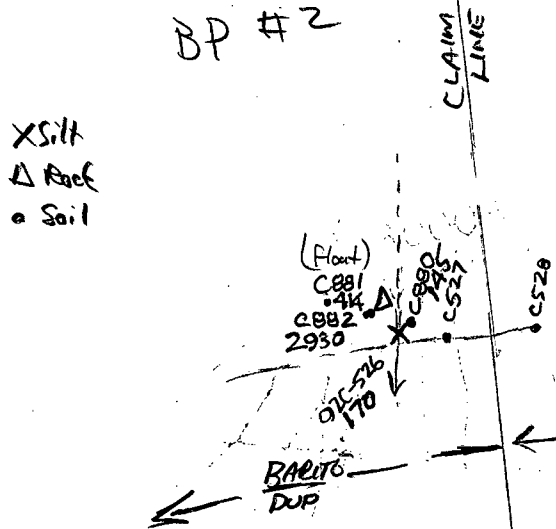 BP #2
CLAIM
LINE
X Silt
Δ Rock
• Soil
(float)
C881
.414
C882
2930
C880
145
C527
C528
92C-526
170
BARITO
DUP